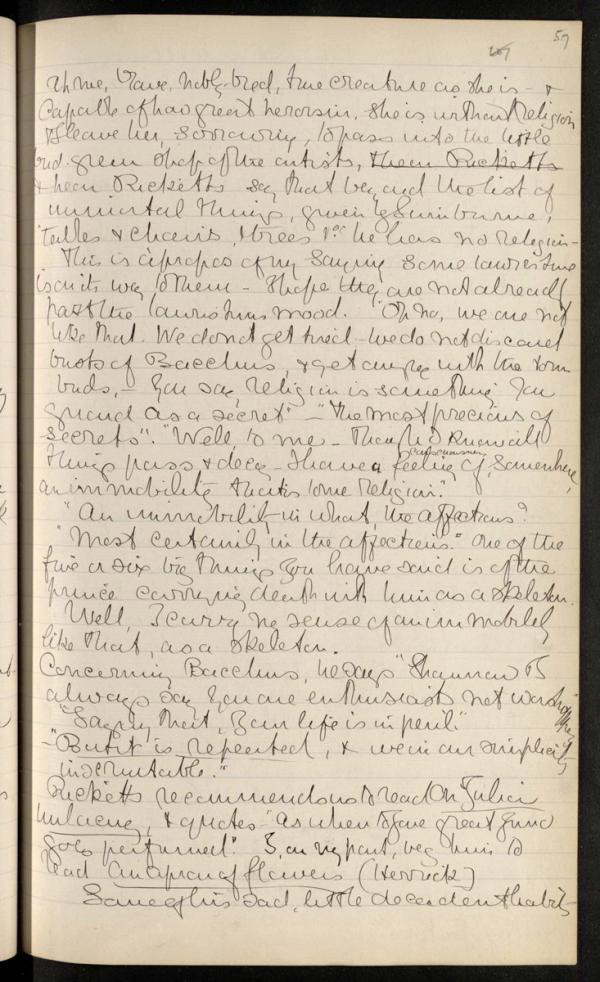 57
brave, nobly-bred, true creature as she is - &
Capable of how great heroism, she is without Religion
& I leave her, sorrowing, to pass into the little
bud-green shop of the artists, them Ricketts
& hear Ricketts say that beyond the list of
immortal things, given by Swinburne,
tables & chairs, & trees &c he has no religion -
This is àpropos of my saying some lawless tune
is on its way to them - I hope they are not already
past the mood. "Oh no, we are not
like that. We do not get tired - we do not discard
busts of Bacchus, & get angry with the torn
buds, - You say religion is something you
guard as a secret" - "The most precious of
secrets". "Well, to me - though I know all
things pass & decay - I have a feeling of, somewhere,
consciousness
an immobility that is to me Religion."
"An immobility in what, the affections?"
"Most certainly in the affections." One of the
five or six big things you have said is of the
prince carrying death with him as a skeleton.
Well, I carry the sense of an immobility
like that, as a skeleton.
Concerning Bacchus, he says "Shannon &
always say you are enthusiasts not worshippers"
"Saying that, your life is in peril."
- "But it is repeated, & we in our simplicity
inscrutable."
Ricketts recommends us to read On Julia's
unlacing, & quotes "as when to Jove great Juno
goes perfumed". I, on my part, beg him to
read An apron of flowers (Herrick)
Some of his sad, little decadent habits